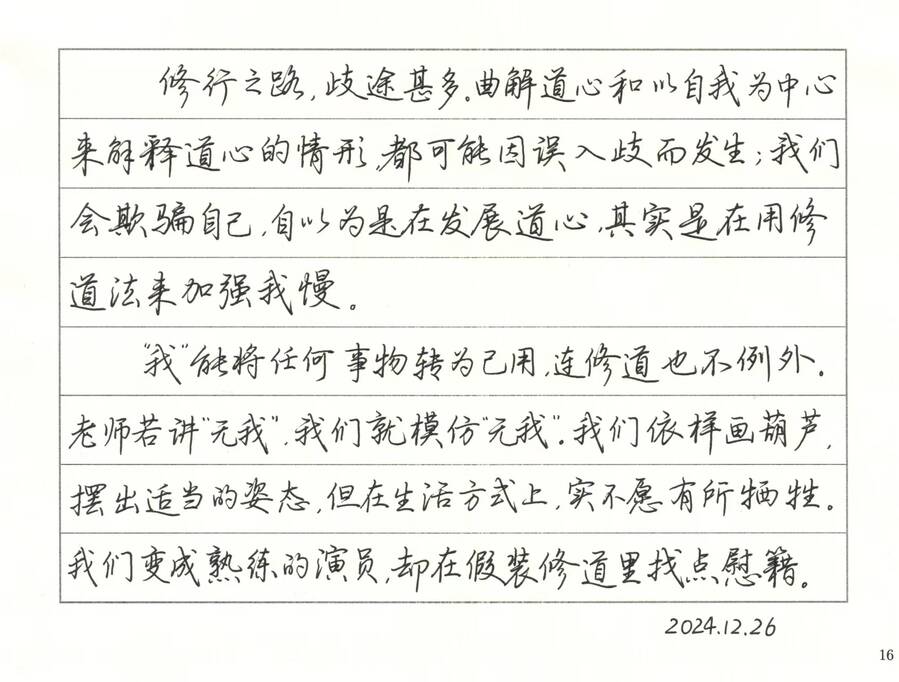 修行之路，歧途甚多。曲解道心和以自我为中心
来解释道心的情形，都可能因误入歧而发生；我们
会欺骗自己，自以为是在发展道心，其实是在用修
道法来加强我慢。
“我”能将任何事物转为己用，连修道也不例外。
老师若讲“无我”，我们就模仿“无我”。我们依样画葫芦，
摆出适当的姿态，但在生活方式上，实不愿有所牺牲。
我们变成熟练的演员，却在假装修道里找点慰籍。
2024.12.26
16